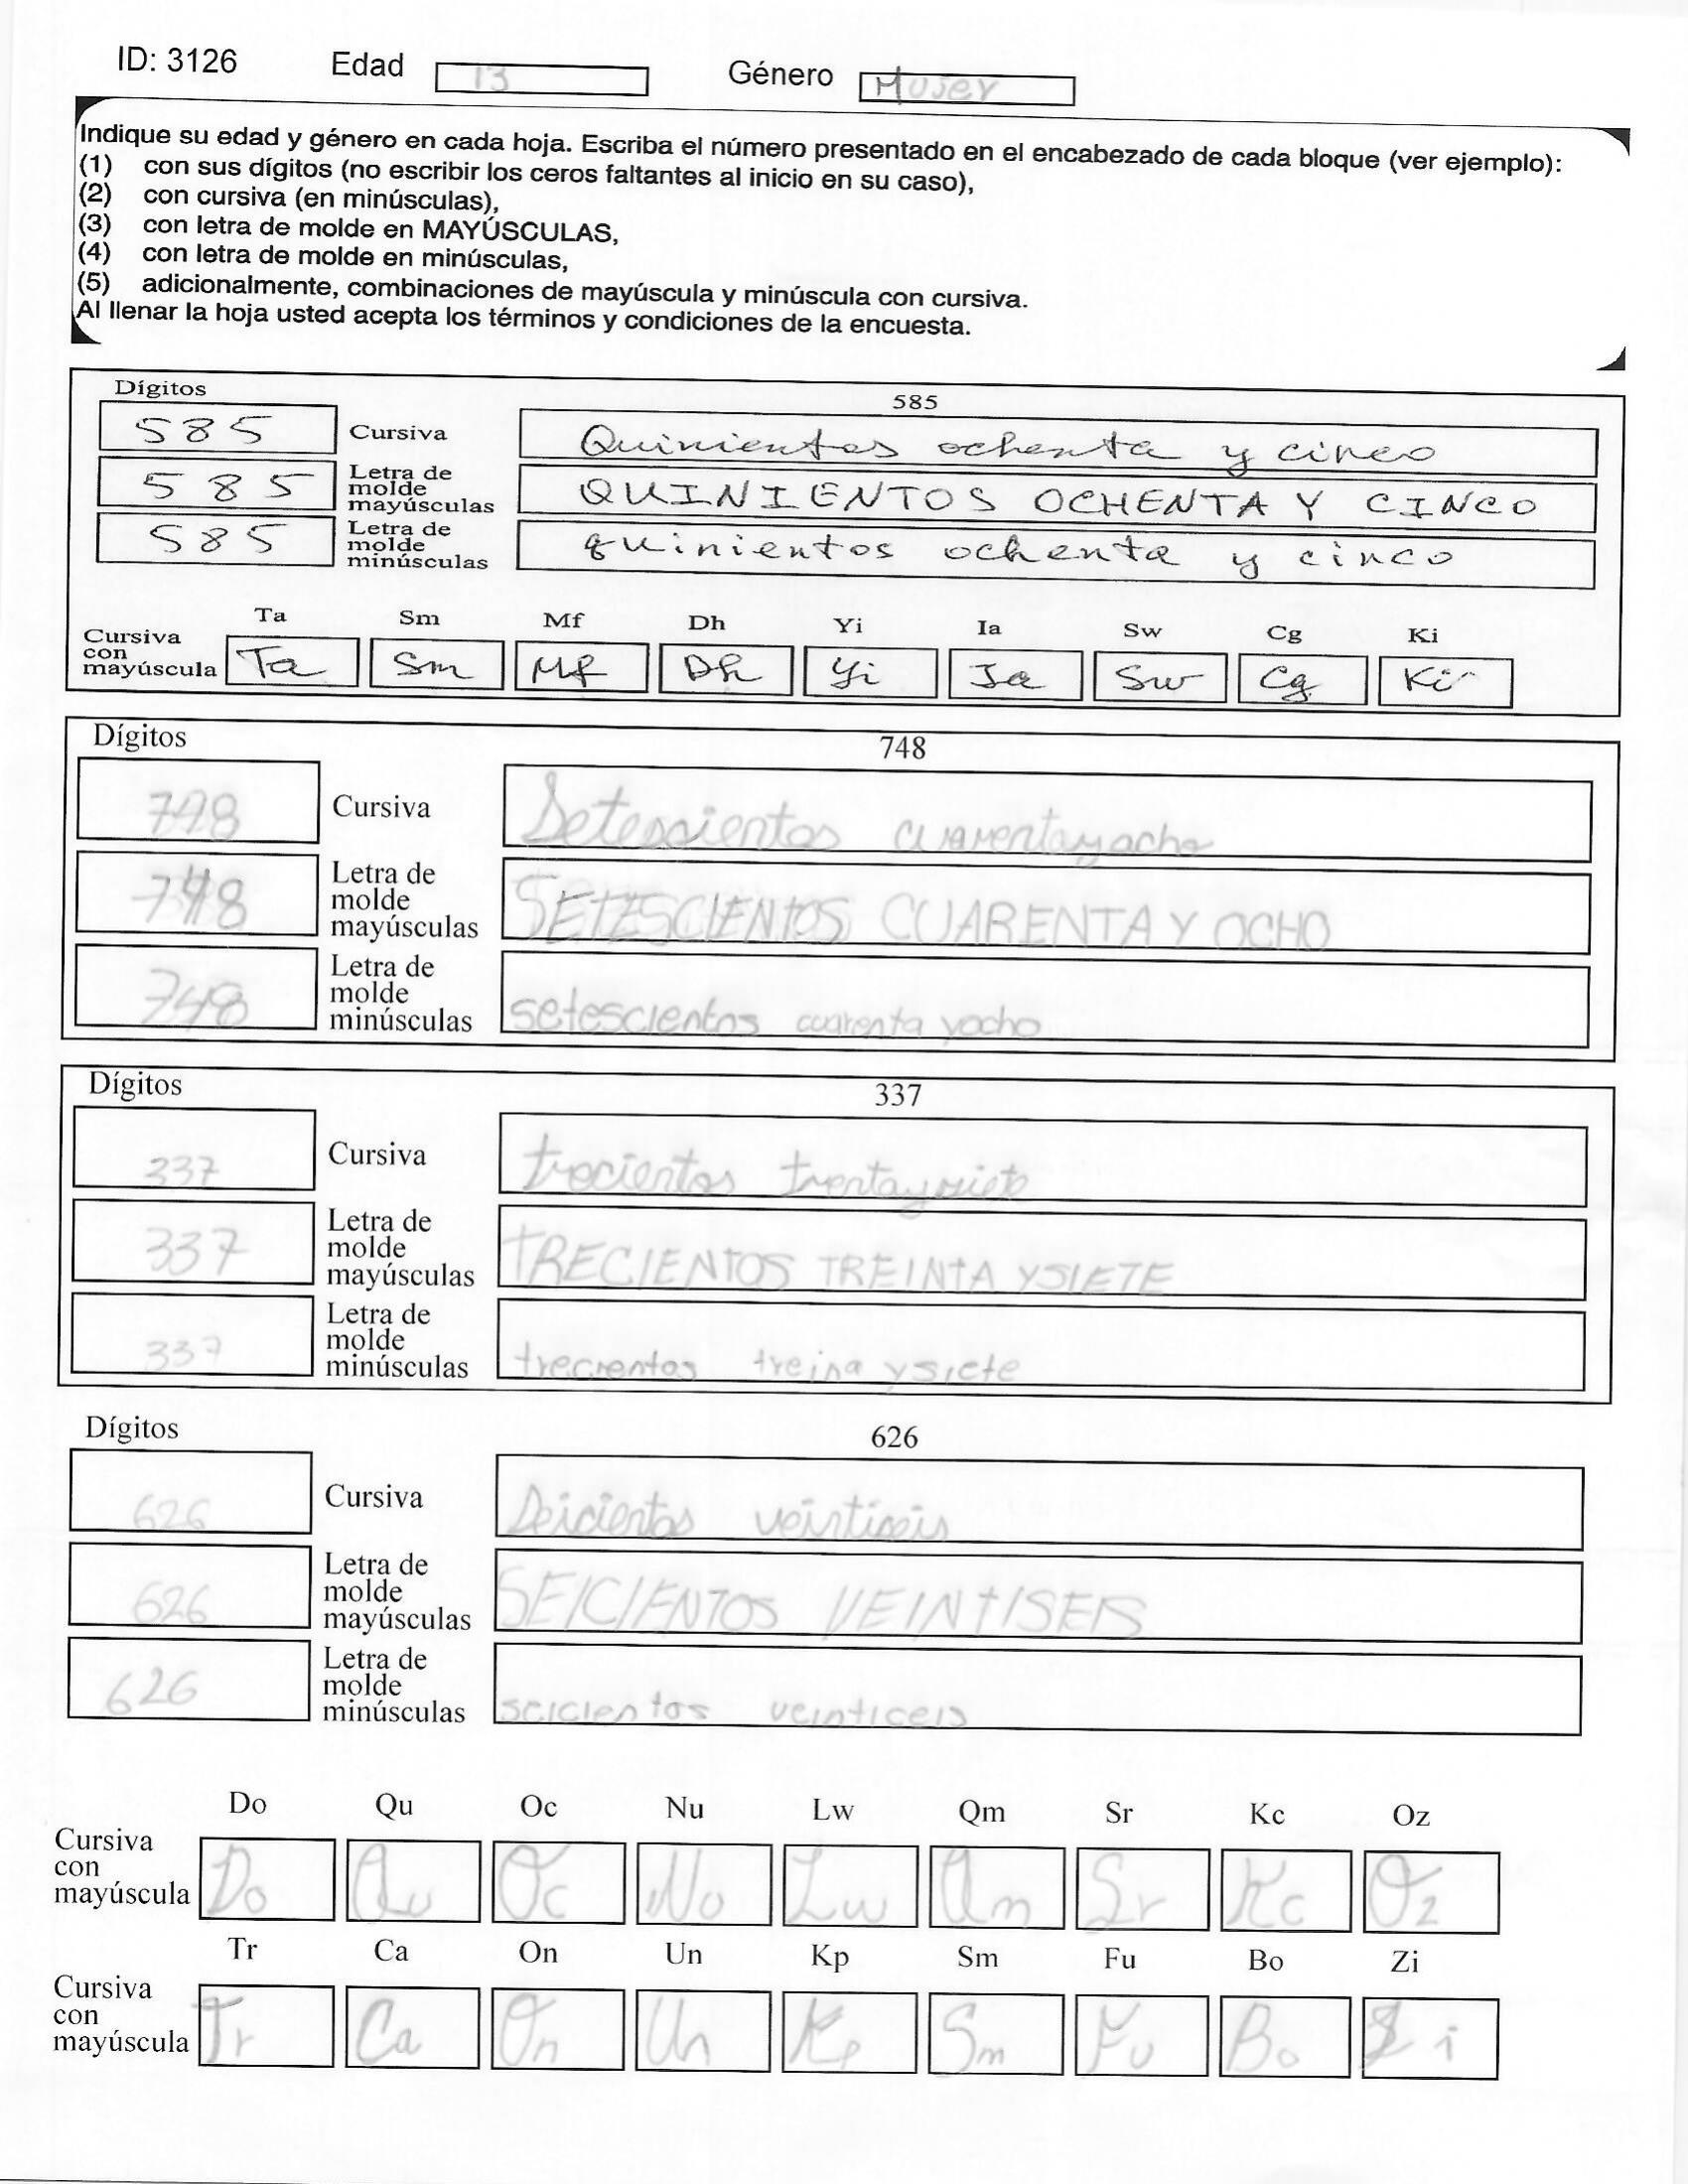 ID: 3126 Edad 13 Género Mujer
Indique su edad y género en cada hoja. Escriba el número presentado en el encabezado de cada bloque (ver ejemplo):
(1) con sus dígitos (no escribir los ceros faltantes al inicio en su caso),
(2) con cursiva (en minúsculas),
(3) con letra de molde en MAYÚSCULAS,
(4) con letra de molde en minúsculas,
(5) adicionalmente, combinaciones de mayúscula y minúscula con cursiva.
Al llenar la hoja usted acepta los términos y condiciones de la encuesta.
Dígitos 585
585 Cursiva Quinientos ochenta y cinco
585 Letra de molde mayúsculas QUINIENTOS OCHENTA Y CINCO
585 Letra de molde minúsculas quinientos ochenta y cinco
Ta Sm Mf Dh Yi Ia Sw Cg Ki
Cursiva con mayúscula Ta Sm Mf Dh Yi Ia Sw Cg Ki
Dígitos 748
748 Cursiva Setescientos cuarentayocho
748 Letra de molde mayúsculas SETESCIENTOS CUARENTA Y OCHO
748 Letra de molde minúsculas setescientos cuarenta yocho
Dígitos 337
337 Cursiva trecientos trentaysiete
337 Letra de molde mayúsculas TRECIENTOS TREINTA YSIETE
337 Letra de molde minúsculas trecientos treina ysiete
Dígitos 626
626 Cursiva Seicientos veintiseis
626 Letra de molde mayúsculas SEICIENTOS VEINTISEIS
626 Letra de molde minúsculas seicientos veinticeis
Do Qu Oc Nu Lw Qm Sr Kc Oz
Cursiva con mayúscula Do Qu Oc Nu Lw Qm Sr Kc Oz
Tr Ca On Un Kp Sm Fu Bo Zi
Cursiva con mayúscula Tr Ca On Un Kp Sm Fu Bo Zi